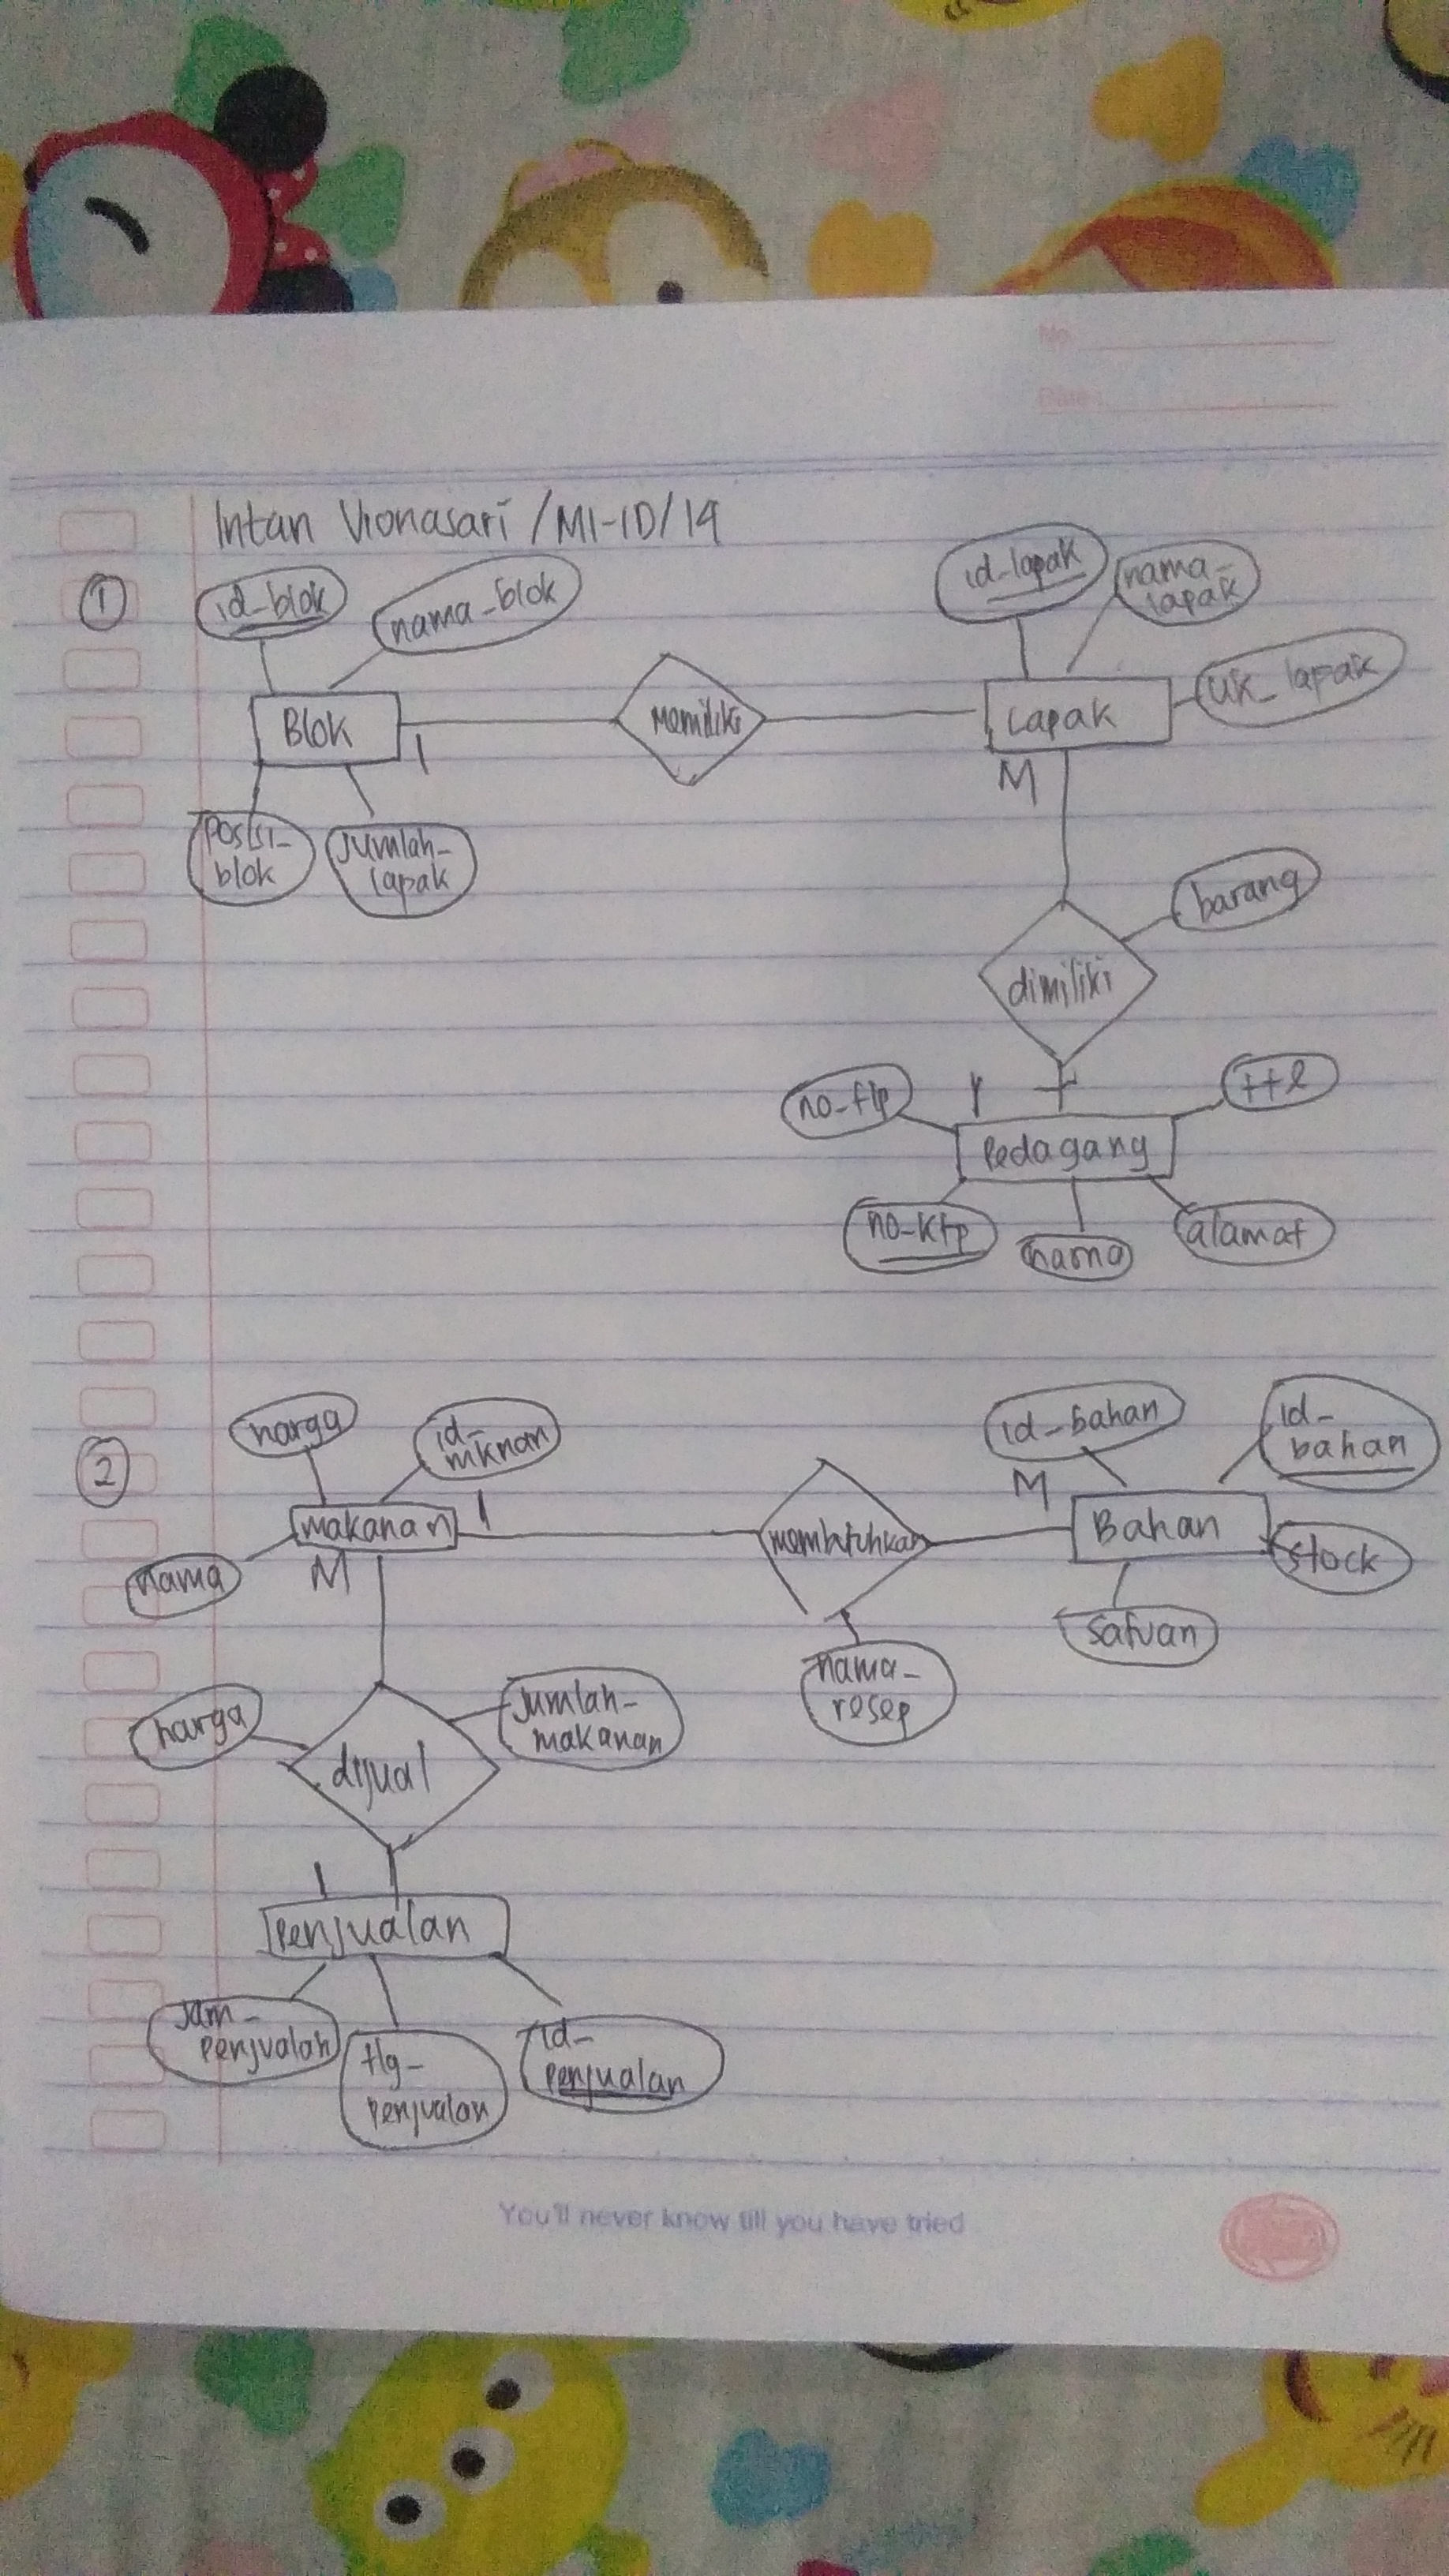 No
Date :
Intan Vionasari /MI-1D/19
1
id_blok
nama_blok
id_lapak
nama_
lapak
Blok
1
Memiliki
Lapak
M
uk_lapak
Posisi_
blok
Jumlah_
lapak
barang
dimiliki
no_tlp
1
ttl
Pedagang
no_ktp
nama
alamat
2
harga
id_
mknan
id_bahan
id_
bahan
M
makanan
1
membutuhkan
Bahan
nama
M
stock
satuan
nama_
resep
harga
Jumlah_
makanan
dijual
1
Penjualan
Jam_
penjualan
tlg_
penjualan
id_
penjualan
You'll never know till you have tried